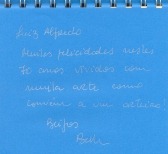 Luiz Alfredo
Muitas felicidades nestes
70 anos vividos com
muita arte como
convém a um artista!
Beijos